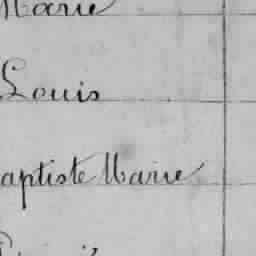 Marie
Louis
aptiste Marie